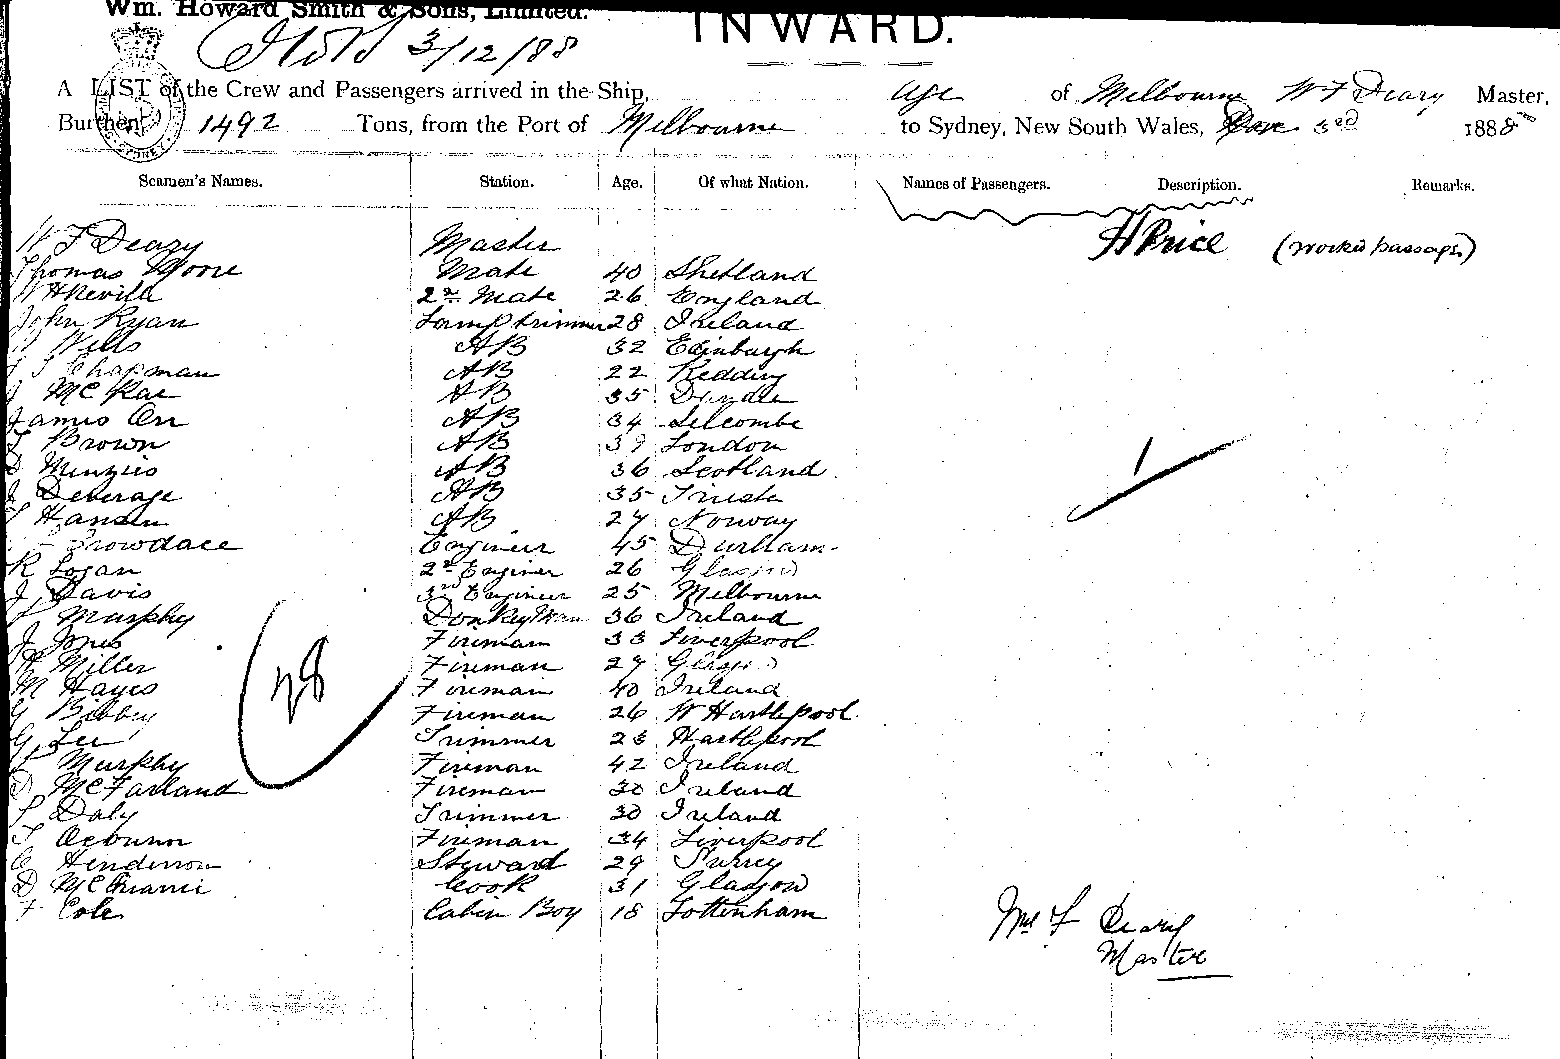 Wm. Howard Smith & Sons, Limited.
INWARD.
3/12/88
A LIST of the Crew and Passengers arrived in the Ship, Age of Melbourne W F Deary Master,
Burthen 1492 Tons, from the Port of Melbourne to Sydney, New South Wales, 3rd 1888
Seamen's Names. Station. Age. Of what Nation. Names of Passengers. Description. Remarks.
W F Deary Master H Price (worked passage)
Thomas Moore Mate 40 Shetland
W H Nevill 2nd Mate 26 England
John Ryan Lamp trimmer 28 Ireland
Wells AB 32 Edinburgh
Chapman AB 22 Redding
J McRae AB 35 Dundee
James Orr AB 34
T Brown AB 39 London
D Menzies AB 36 Scotland
J Deverage AB 35 Trieste
T Hansen AB 27 Norway
Crowdace Engineer 45 Durham
R Logan 2nd Engineer 26 Glasgow
J Davis 3rd Engineer 25 Melbourne
Murphy Donkey Man 36 Ireland
J Jones Fireman 33 Liverpool
Miller Fireman 27 Glasgow
M Hayes Fireman 40 Ireland
G Bibbey Fireman 26 W Hartlepool
G Lee Trimmer 23 Hartlepool
Murphy Fireman 42 Ireland
D McFarland Fireman 30 Ireland
Daly Trimmer 30 Ireland
T Fireman 34 Liverpool
C Henderson Steward 29 Surrey
D Cook 31 Glasgow
F Cole Cabin Boy 18 Tottenham
28
1
Wm F Deary
Master